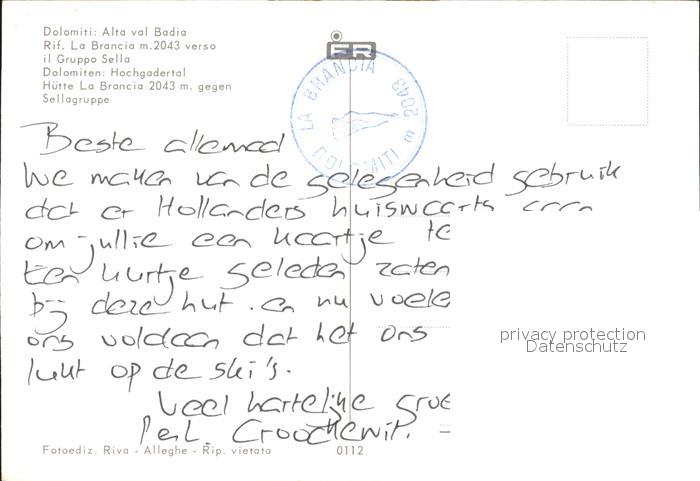 Dolomiti: Alta val Badia
Rif. La Brancia m.2043 verso
il Gruppo Sella
Dolomiten: Hochgadertal
Hütte La Brancia 2043 m. gegen
Sellagruppe
FR
LA BRANCIA 2043 m
DOLOMITI
Beste allemaal
We maken van de gelegenheid gebruik
dat er Hollanders huiswaarts gaan
om jullie een kaartje te
Een uurtje geleden zaten
bij deze hut. en nu voele
ons voldaan dat het ons
lukt op de ski's.
Veel hartelijke groe
P en L.
privacy protection
Datenschutz
Fotoediz. Riva - Alleghe - Rip. vietata
0112